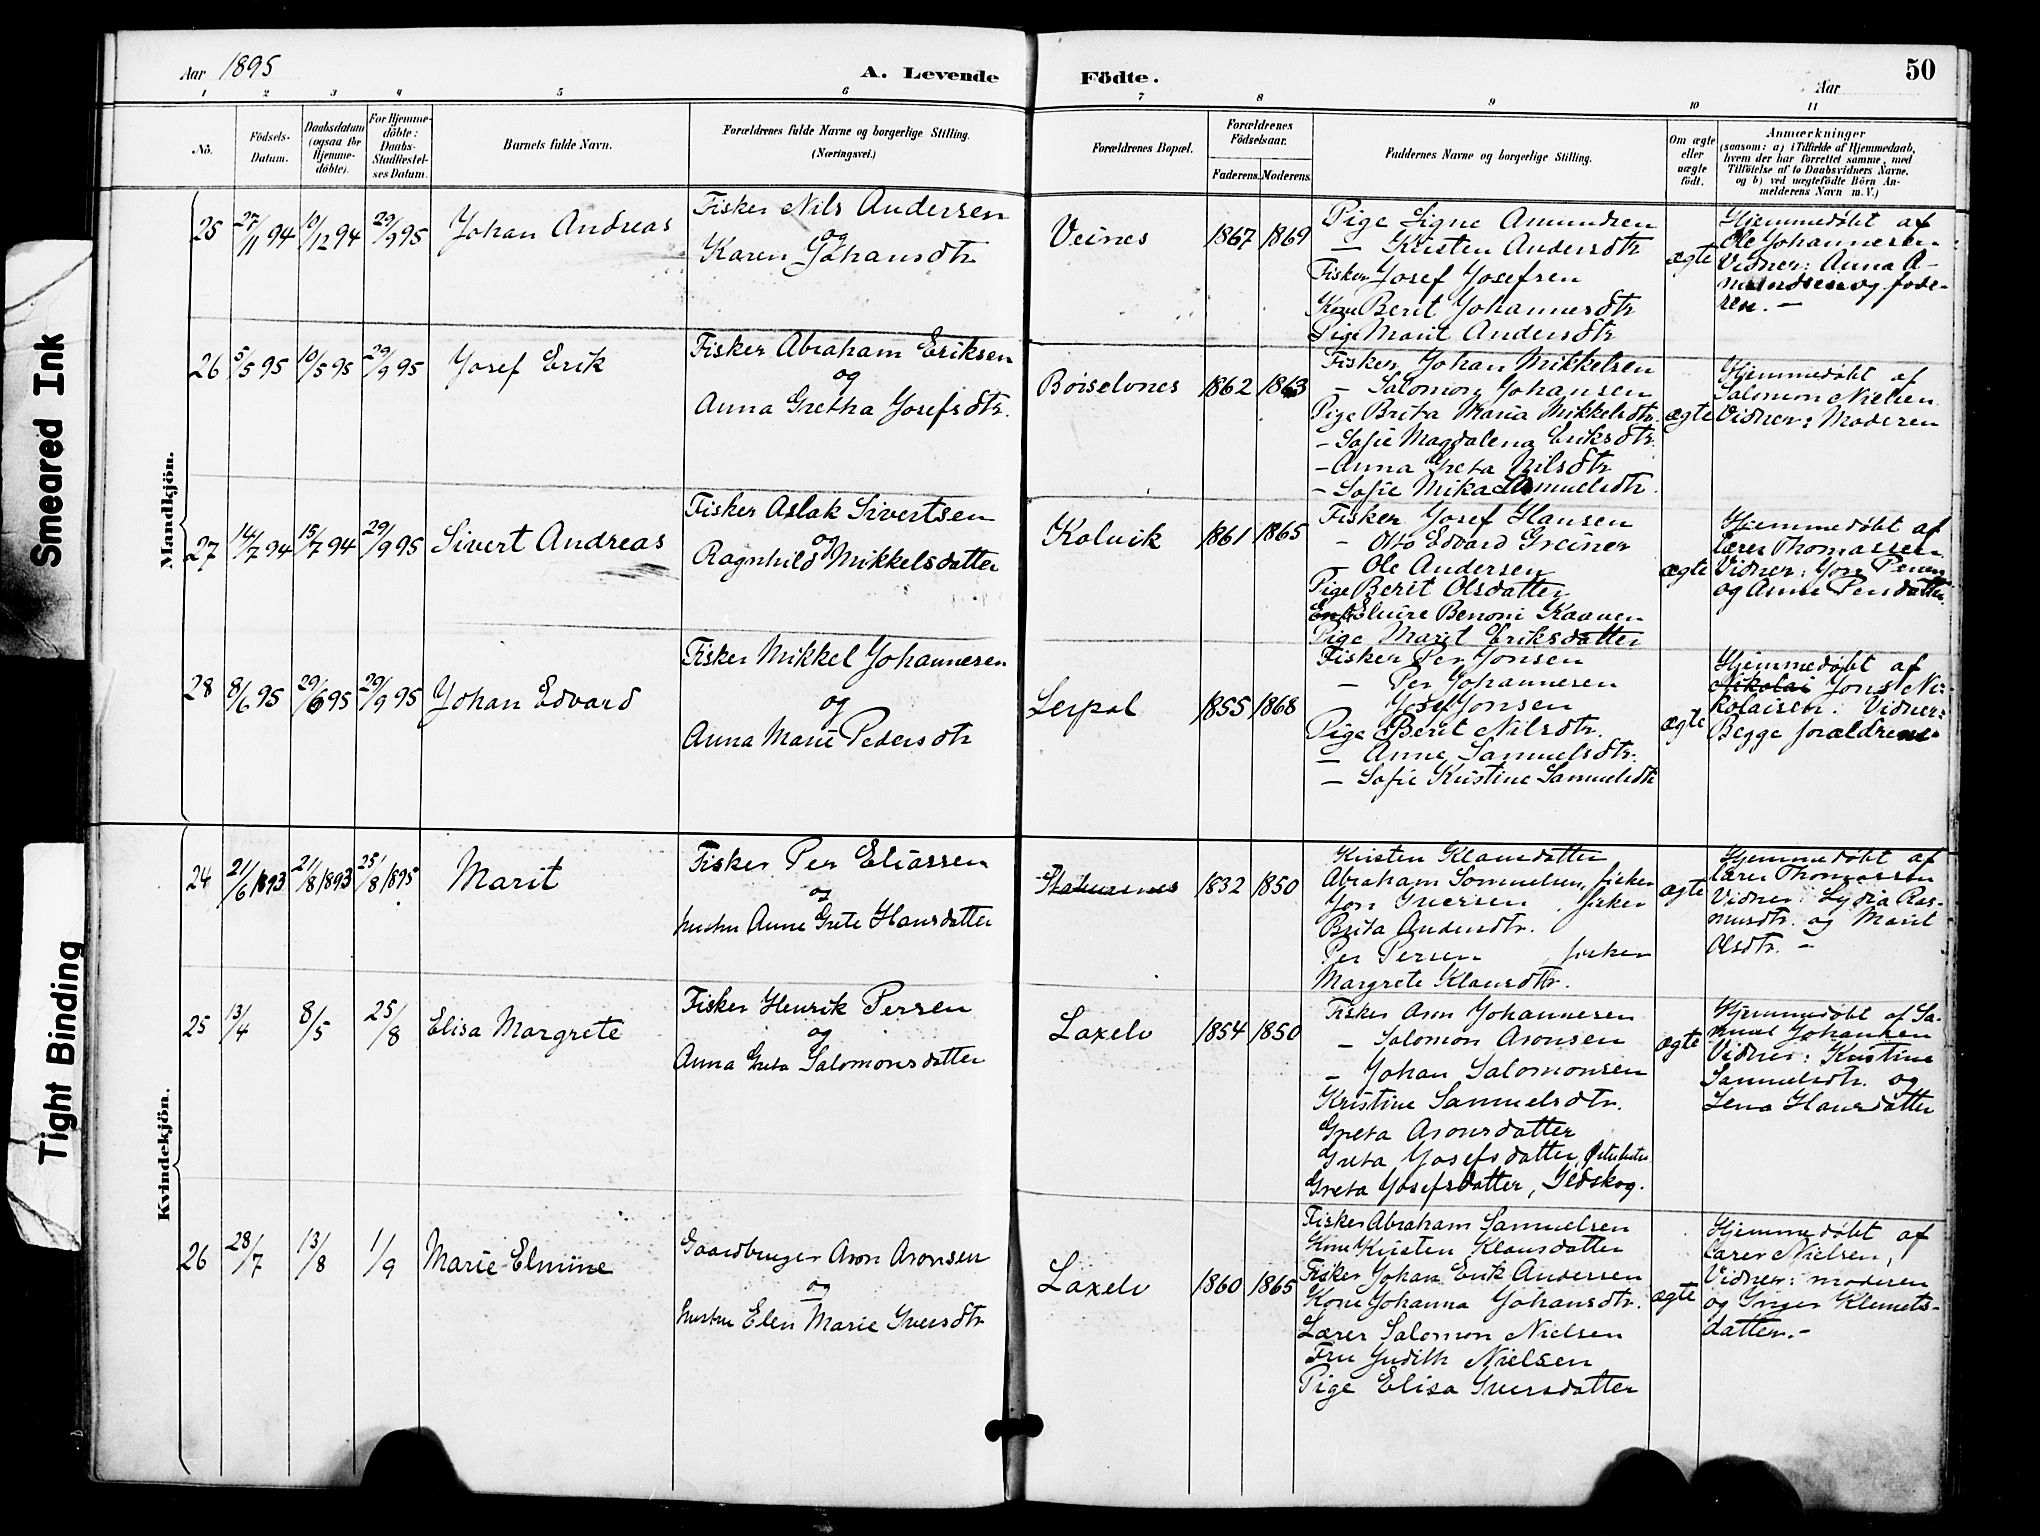 Smeared Ink
Tight Binding
Aar 1895
A. Levende Födte.
Aar
50
1 2 3 4 5 6 7 8 9 10 11
No.
Födsels-
Datum.
Daabsdatum
(ogsaa for
Hjemme-
döbte).
For Hjemme-
döbte:
Daabs-
Stadfæstel-
ses Datum.
Barnets fulde Navn.
Forældrenes fulde Navne og borgerlige Stilling.
(Næringsvei.)
Forældrenes Bopæl.
Forældrenes
Födselsaar.
Faderens. Moderens.
Faddernes Navne og borgerlige Stilling.
Om ægte
eller
uægte
födt.
Anmærkninger
(saasom: a) i Tilfælde af Hjemmedaab,
hvem der har forrettet samme, med
Tilföielse af to Daabsvidners Navne.
og b) ved uægtefödte Börn An-
melderens Navn m. V.)
Mandkjön.
25 27/11 94 10/12 94 29/9 95 Johan Andreas
Fisker Nils Andersen
og
Karen Johansdtr
Veines 1867 1869
Pige Signe Amundsen
— Kristen Andersdtr
Fisker Josef Josefsen
Kone Berit Johannesdtr
Pige Marit Andersdtr
ægte
Hjemmedøbt af
Ole Johannesen
Vidner: Anna A-
mundsen og fade-
ren. —
26 5/5 95 10/5 95 29/9 95 Josef Erik
Fisker Abraham Eriksen
og
Anna Gretha Josefsdtr.
Börselvnes 1862 1863
Fisker Johan Mikkelsen
— Salomon Johansen
Pige Brita Maria Mikkelsdtr.
— Sofie Magdalena Eriksdtr.
— Anna Greta Nilsdtr
— Sofie Mika Samuelsdtr.
ægte
Hjemmedøbt af
Salomon Nielsen
Vidner: Moderen
27 14/7 94 15/7 94 29/9 95 Sivert Andreas
Fisker Aslak Sivertsen
og
Ragnhild Mikkelsdatter
Kolvik 1861 1865
Fisker Josef Hansen
— Otto Edvard Greiner
— Ole Andersen
Pige Berit Olsdatter
Enke Elvire Benoni Kaaven
Pige Marit Eriksdatter
ægte
Hjemmedøbt af
lærer Thomassen
Vidner: Jon Persen
og Anne Persdatter.
28 8/6 95 29/6 95 29/9 95 Johan Edvard
Fisker Mikkel Johannesen
og
Anna Marie Pedersdtr
Lerpol 1855 1868
Fisker Per Jonsen
— Per Johannesen
Josef Jonsen
Pige Berit Nilsdtr.
— Anne Samuelsdtr.
— Sofie Kristine Samuelsdtr
ægte
Hjemmedøbt af
Nikolai Jons Ni-
kolaisen. Vidner:
Begge forældrene.
Kvindekjön.
24 21/6 1893 21/8 1893 25/8 1895 Marit
Fisker Per Eliassen
og
hustru Anne Grete Hansdatter
1832 1850
Kristen Klausdatter
Abraham Samuelsen, fisker
Jon Iversen, fisker
Brita Andersdtr.
Per Persen, fisker
Margrete Klausdtr.
ægte
Hjemmedøbt af
lærer Thomassen
Vidner: Lydia Ras-
musdtr. og Marit
Olsdtr. —
25 13/4 8/5 25/8 Elisa Margrete
Fisker Henrik Persen
og
Anna Greta Salomonsdatter
Laxelv 1854 1850
Fisker Aron Johannesen
— Salomon Aronsen
— Johan Salomonsen
Kristine Samuelsdtr.
Greta Aronsdatter
Greta Josefsdatter,
Greta Josefsdatter, Ildskog.
ægte
Hjemmedøbt af Sa-
muel Johansen
Vidner: Kristine
Samuelsdtr. og
Lena Hansdatter
26 28/7 13/8 1/9 Marie Elmine
Gaardbruger Aron Aronsen
og
hustru Elen Marie Iversdtr
Laxelv 1860 1865
Fisker Abraham Samuelsen
Kone Kristen Klausdatter
Fisker Johan Erik Andersen
Kone Johanna Johansdtr.
Lærer Salomon Nielsen
Fru Judith Nielsen
Pige Elisa Iversdatter
ægte
Hjemmedøbt af
lærer Nielsen,
Vidner: moderen
og Inger Klemets-
datter. —